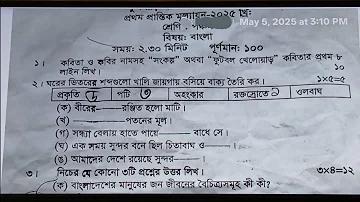 প্রথম প্রান্তিক মূল্যায়ন-২০২৫ খ্রি:
May 5, 2025 at 3:10 PM
শ্রেণি :
বিষয়: বাংলা
সময়: ২.৩০ মিনিট পূর্ণমান: ১০০
১। কবিতা ও কবির নামসহ "সংকল্প" অথবা "ফুটবল খেলোয়াড়" কবিতার প্রথম ৮
লাইন লিখ। ১০
২। ঘরের ভিতরের শব্দগুলো খালি জায়গায় বসিয়ে বাক্য তৈরি কর। ১×৫=৫
প্রকৃতি পটি অহংকার রক্তস্রোতে ওলবাঘ
(ক) বীরের রঞ্জিত হলো মাটি।
(খ) পতনের মূল।
(গ) সন্ধ্যা বেলায় হাতে পায়ে বাধে সে।
(ঘ) এক সময় সুন্দর বনে ছিল চিতাবাঘ ও
(ঙ) আমাদের দেশে রয়েছে সুন্দর
৩। নিচের যে কোনো ৩টি প্রশ্নের উত্তর লিখ। ৩×৪=১২
(ক) বাংলাদেশের মানুষের জন জীবনের বৈচিত্র্যসমূহ কী কী?